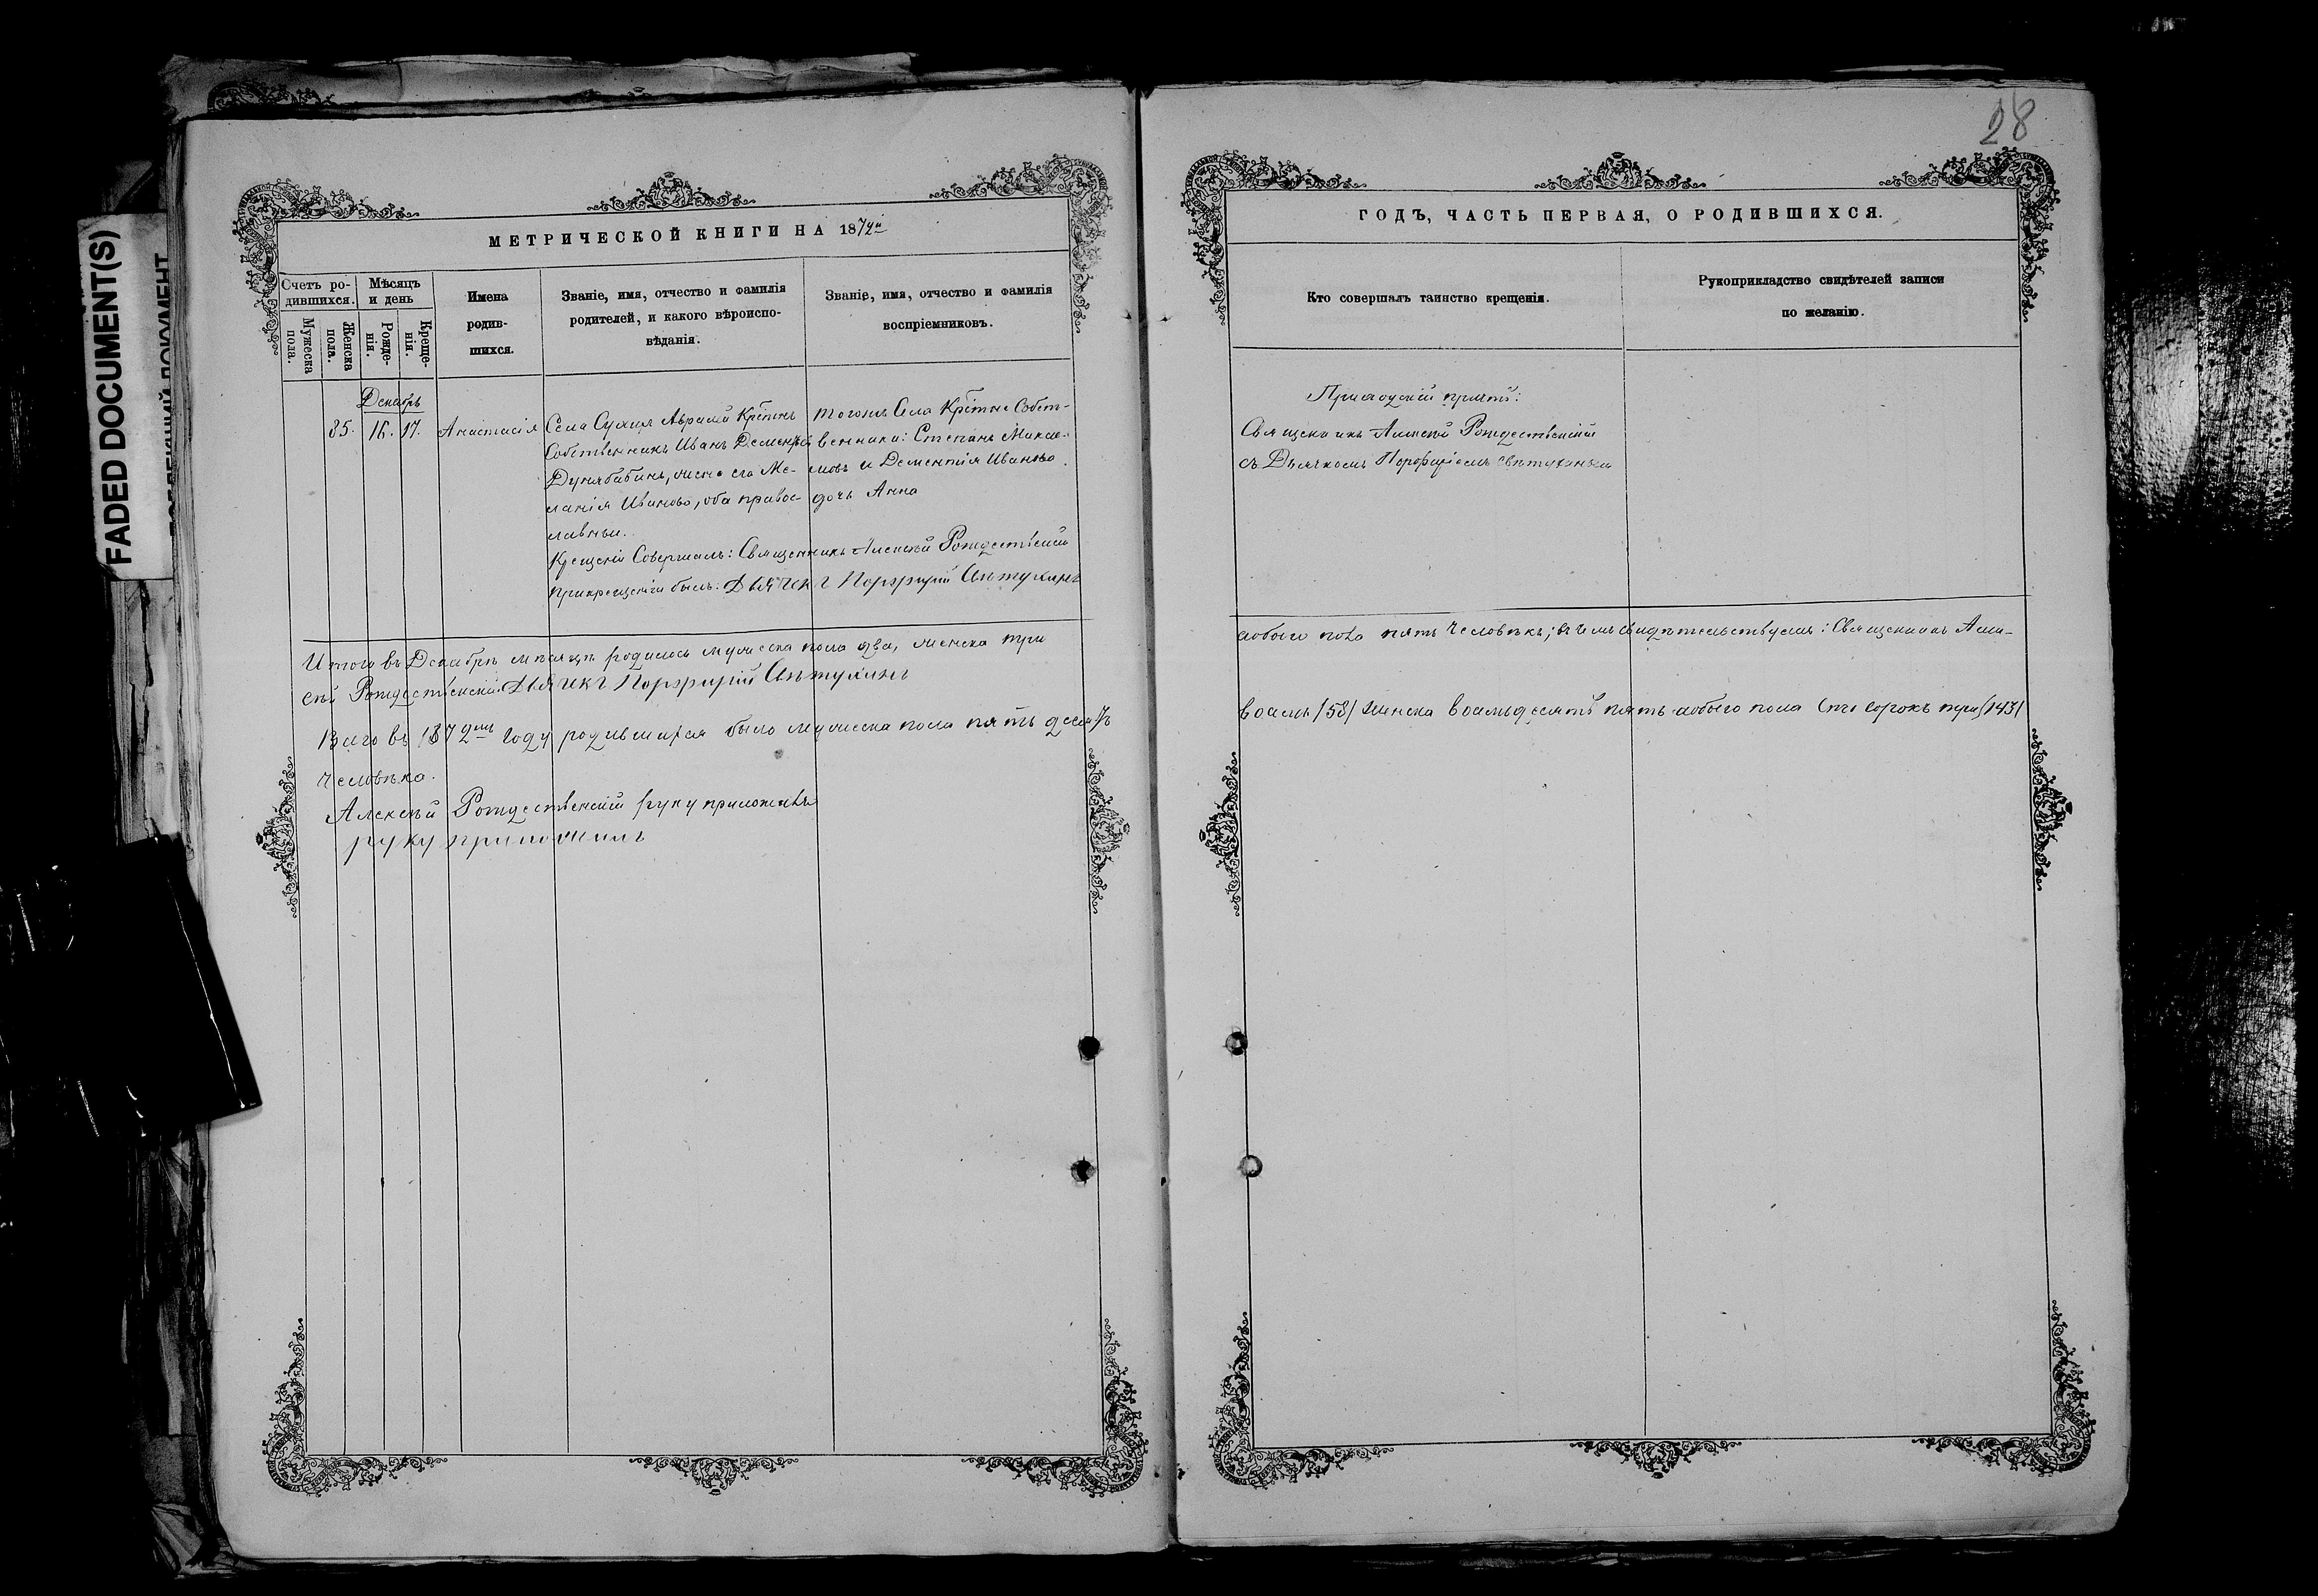 28
FADED DOCUMENT(S)
МЕТРИЧЕСКОЙ КНИГИ НА 1872й
Счетъ ро-
дившихся.
Мѣсяцъ
и день
Мужеска
пола.
Женска
пола.
Рожде-
нія.
Креще-
нія.
Имена
родив-
шихся.
Званіе, имя, отчество и фамилія
родителей, и какого вѣроиспо-
вѣданія.
Званіе, имя, отчество и фамилія
воспріемниковъ.
Декабрь
85. 16. 17. Анастасія
Села Сухия Крестьн
Собственникъ Иванъ Дементьев
жена его Ме-
ланія Иванова, оба правос-
лавныи.
тогожъ Села Крестне Собст-
венники: Степанъ Михай-
ловъ и Дементія Иванова
дочь Анна
Крещеніе Совершалъ: Священникъ Алексѣй Рождественскій
прикрещеніи былъ: Дьячекъ Порфирій
Итого въ Декабрѣ мѣсяцѣ родилось мужеска пола два, женска три
сѣй Рождественскій Дьячекъ Порфирій
Всего въ 1872мъ году родившихся было мужеска пола пятьдесятъ
человѣка.
Алексѣй Рождественскій руку приложилъ
руку приложилъ
ГОДЪ, ЧАСТЬ ПЕРВАЯ, О РОДИВШИХСЯ.
Кто совершалъ таинство крещенія.
Рукоприкладство свидѣтелей записи
по желанію.
Приходскій причтъ:
Священникъ Алексѣй Рождественскій
съ Дьячкомъ Порфиріемъ
обоего пола пять человѣкъ; въ чемъ свидѣтельствуемъ: Священникъ Алек-
восемь /58/ женска восемьдесятъ пять обоего пола сто сорокъ три /143/